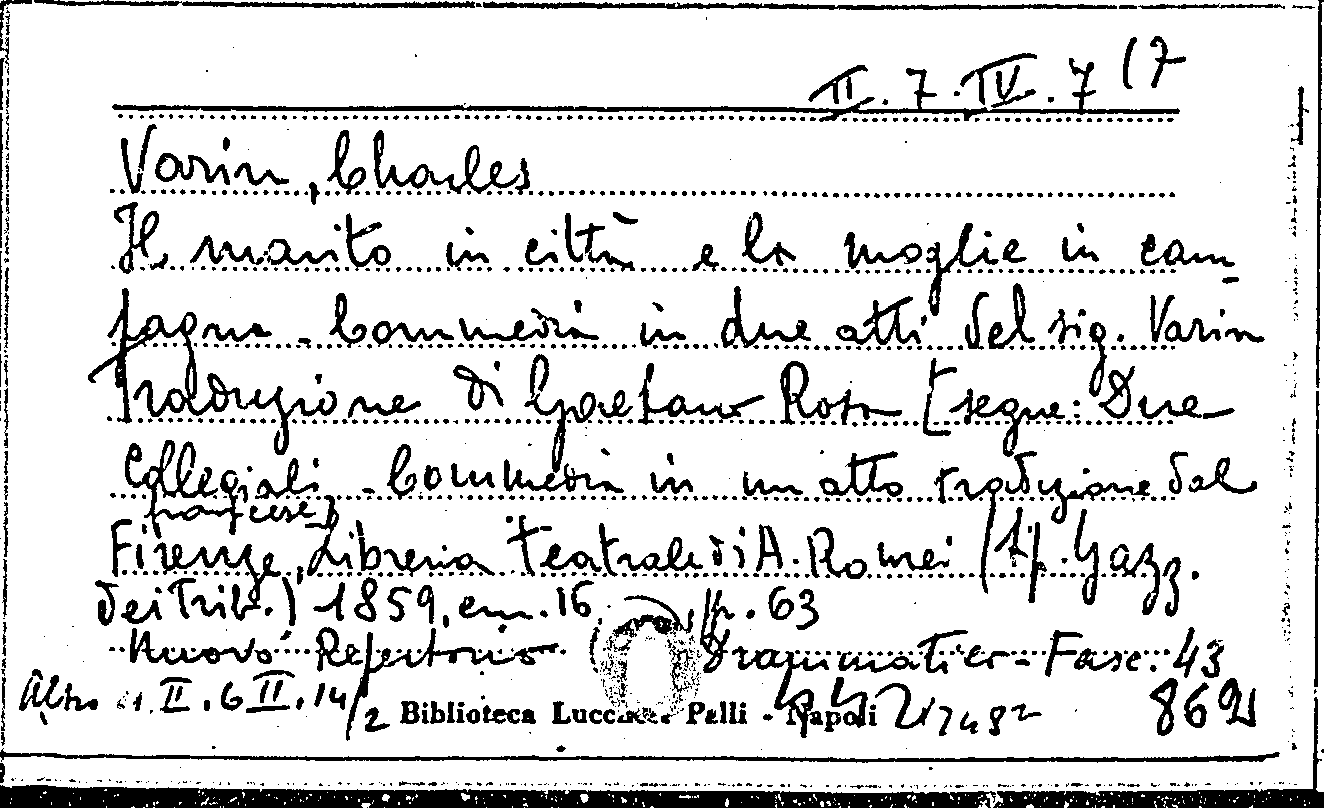 II.7.IV.7(7
Varin, Charles
Il marito in città e la moglie in cam-
pagna - Commedia in due atti del sig. Varin
Traduzione di Gaetano Rosa [segue: Due
Collegiali - Commedia in un atto traduzione dal
francese]
Firenze, Libreria Teatrale di A. Romei (tip. Gazz.
dei Trib.) 1859, cm. 16, pp. 63
Nuovo Repertorio Drammatico - Fasc. 43
Altro II.6.II.14/2 Biblioteca Lucchesi Palli - Napoli